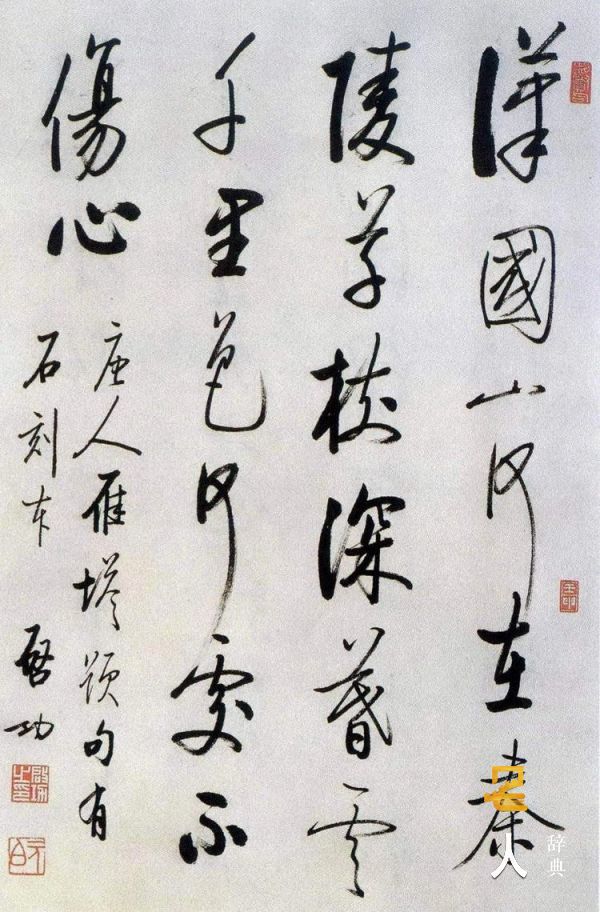 漢國山河在秦
陵草樹深暮雲
千里色何處不
傷心
唐人雁塔題句有
石刻本
啓功
啟功之印
元白
名人
辞典